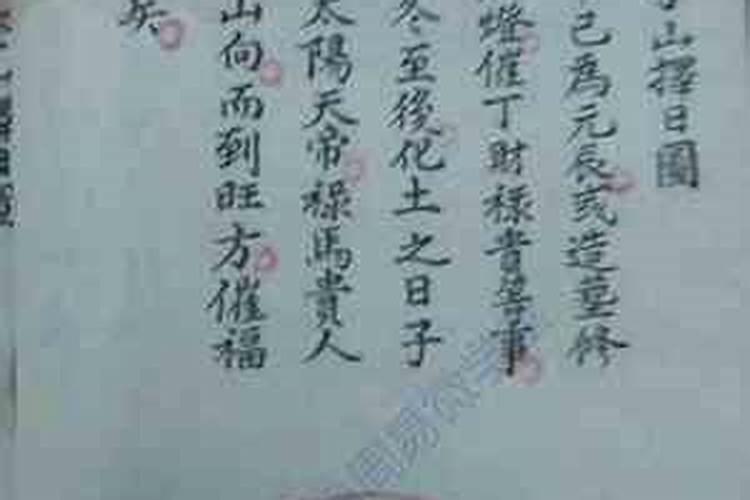 山擇日圖
己為元辰或造墓修
燈催丁財祿貴等事
冬至後化土之日子
太陽天帝祿馬貴人
山向而到旺方催福
矣
周易